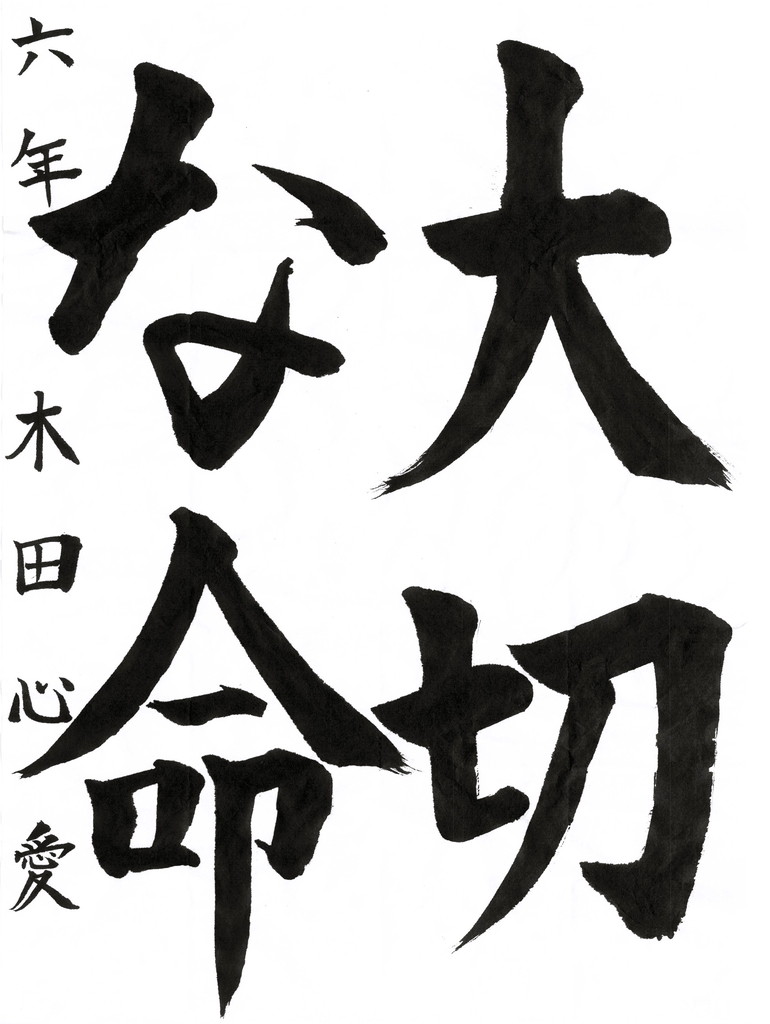 大切
な命
六年 木田心愛